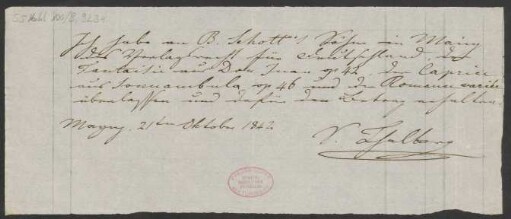 55 Nachl 100/B, 3234
Ich habe an B. Schott's Söhne in Mainz
das Verlagsrecht für Deutschland der
Fantaisie aus Don Juan op 42 der Caprice
aus Sonnambula op 46 und der Romance variée
überlassen und dafür den Betrag erhalten.
Mayng, 21ten Oktober 1842
S. Thalberg